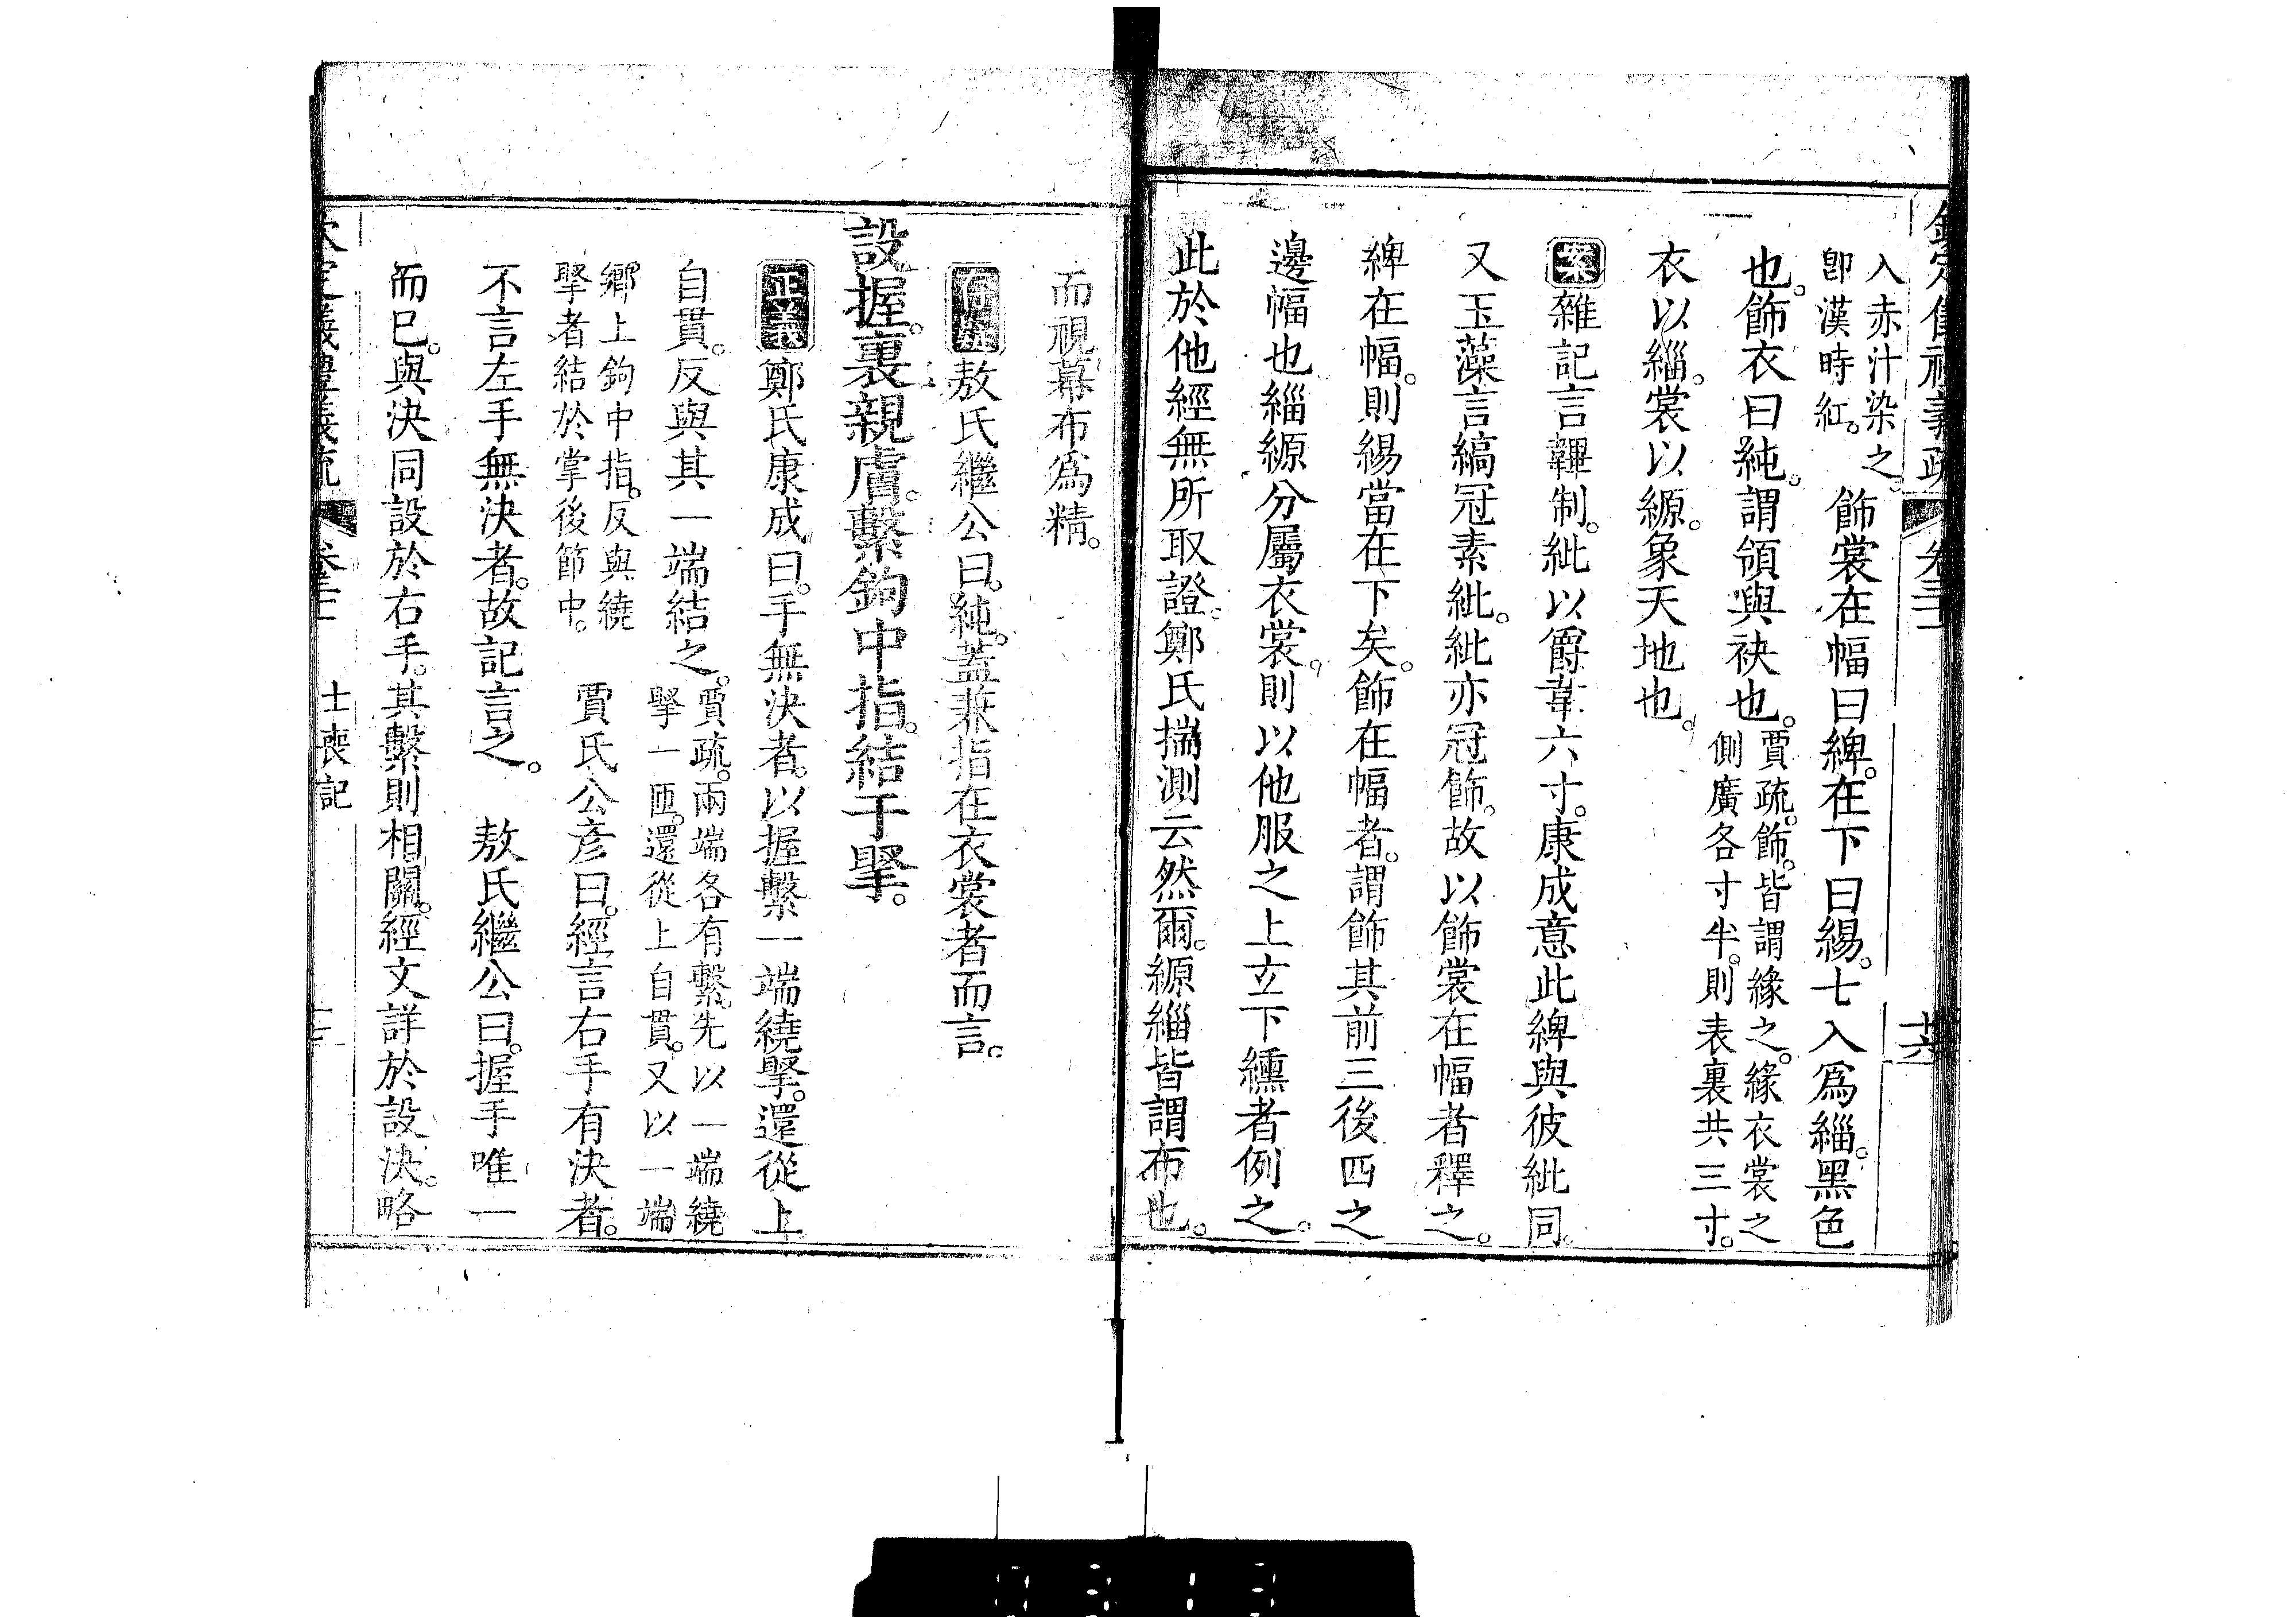 入赤汁染之。
卽漢時紅。
飾裳在幅曰綼。在下曰緆。七入爲緇。黑色
也。飾衣曰純。謂領與袂也。
賈疏。飾。皆謂緣之。緣衣裳之
側廣各寸半。則表裏共三寸。
衣以緇。裳以縓。象天地也。
案 雜記言韠制。紕以爵韋六寸。康成意此綼與彼紕同。
又玉藻言縞冠素紕。紕亦冠飾。故以飾裳在幅者釋之。
綼在幅。則緆當在下矣。飾在幅者。謂飾其前三後四之
邊幅也緇縓分屬衣裳。則以他服之上玄下纁者例之。
此於他經無所取證。鄭氏揣測云然爾。縓緇皆謂布也。
而視幕布爲精。
敖氏繼公曰。純。蓋兼指在衣裳者而言。
設握。裏親膚。繫鉤中指。結于掔。
正義 鄭氏康成曰。手無決者。以握繫一端繞掔。還從上
自貫。反與其一端結之。
賈疏。兩端各有繫。先以一端繞
掔一匝。還從上自貫。又以一端
鄉上鉤中指。反與繞
掔者結於掌後節中。
賈氏公彥曰。經言右手有決者。
不言左手無決者。故記言之。 敖氏繼公曰。握手唯一
而已。與決同設於右手。其繫則相關。經文詳於設決。略
士喪記